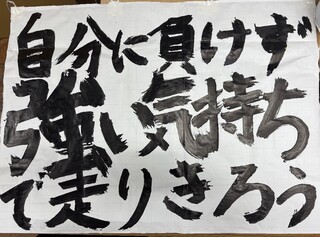 自分に負けず
強い気持ち
で走りきろう